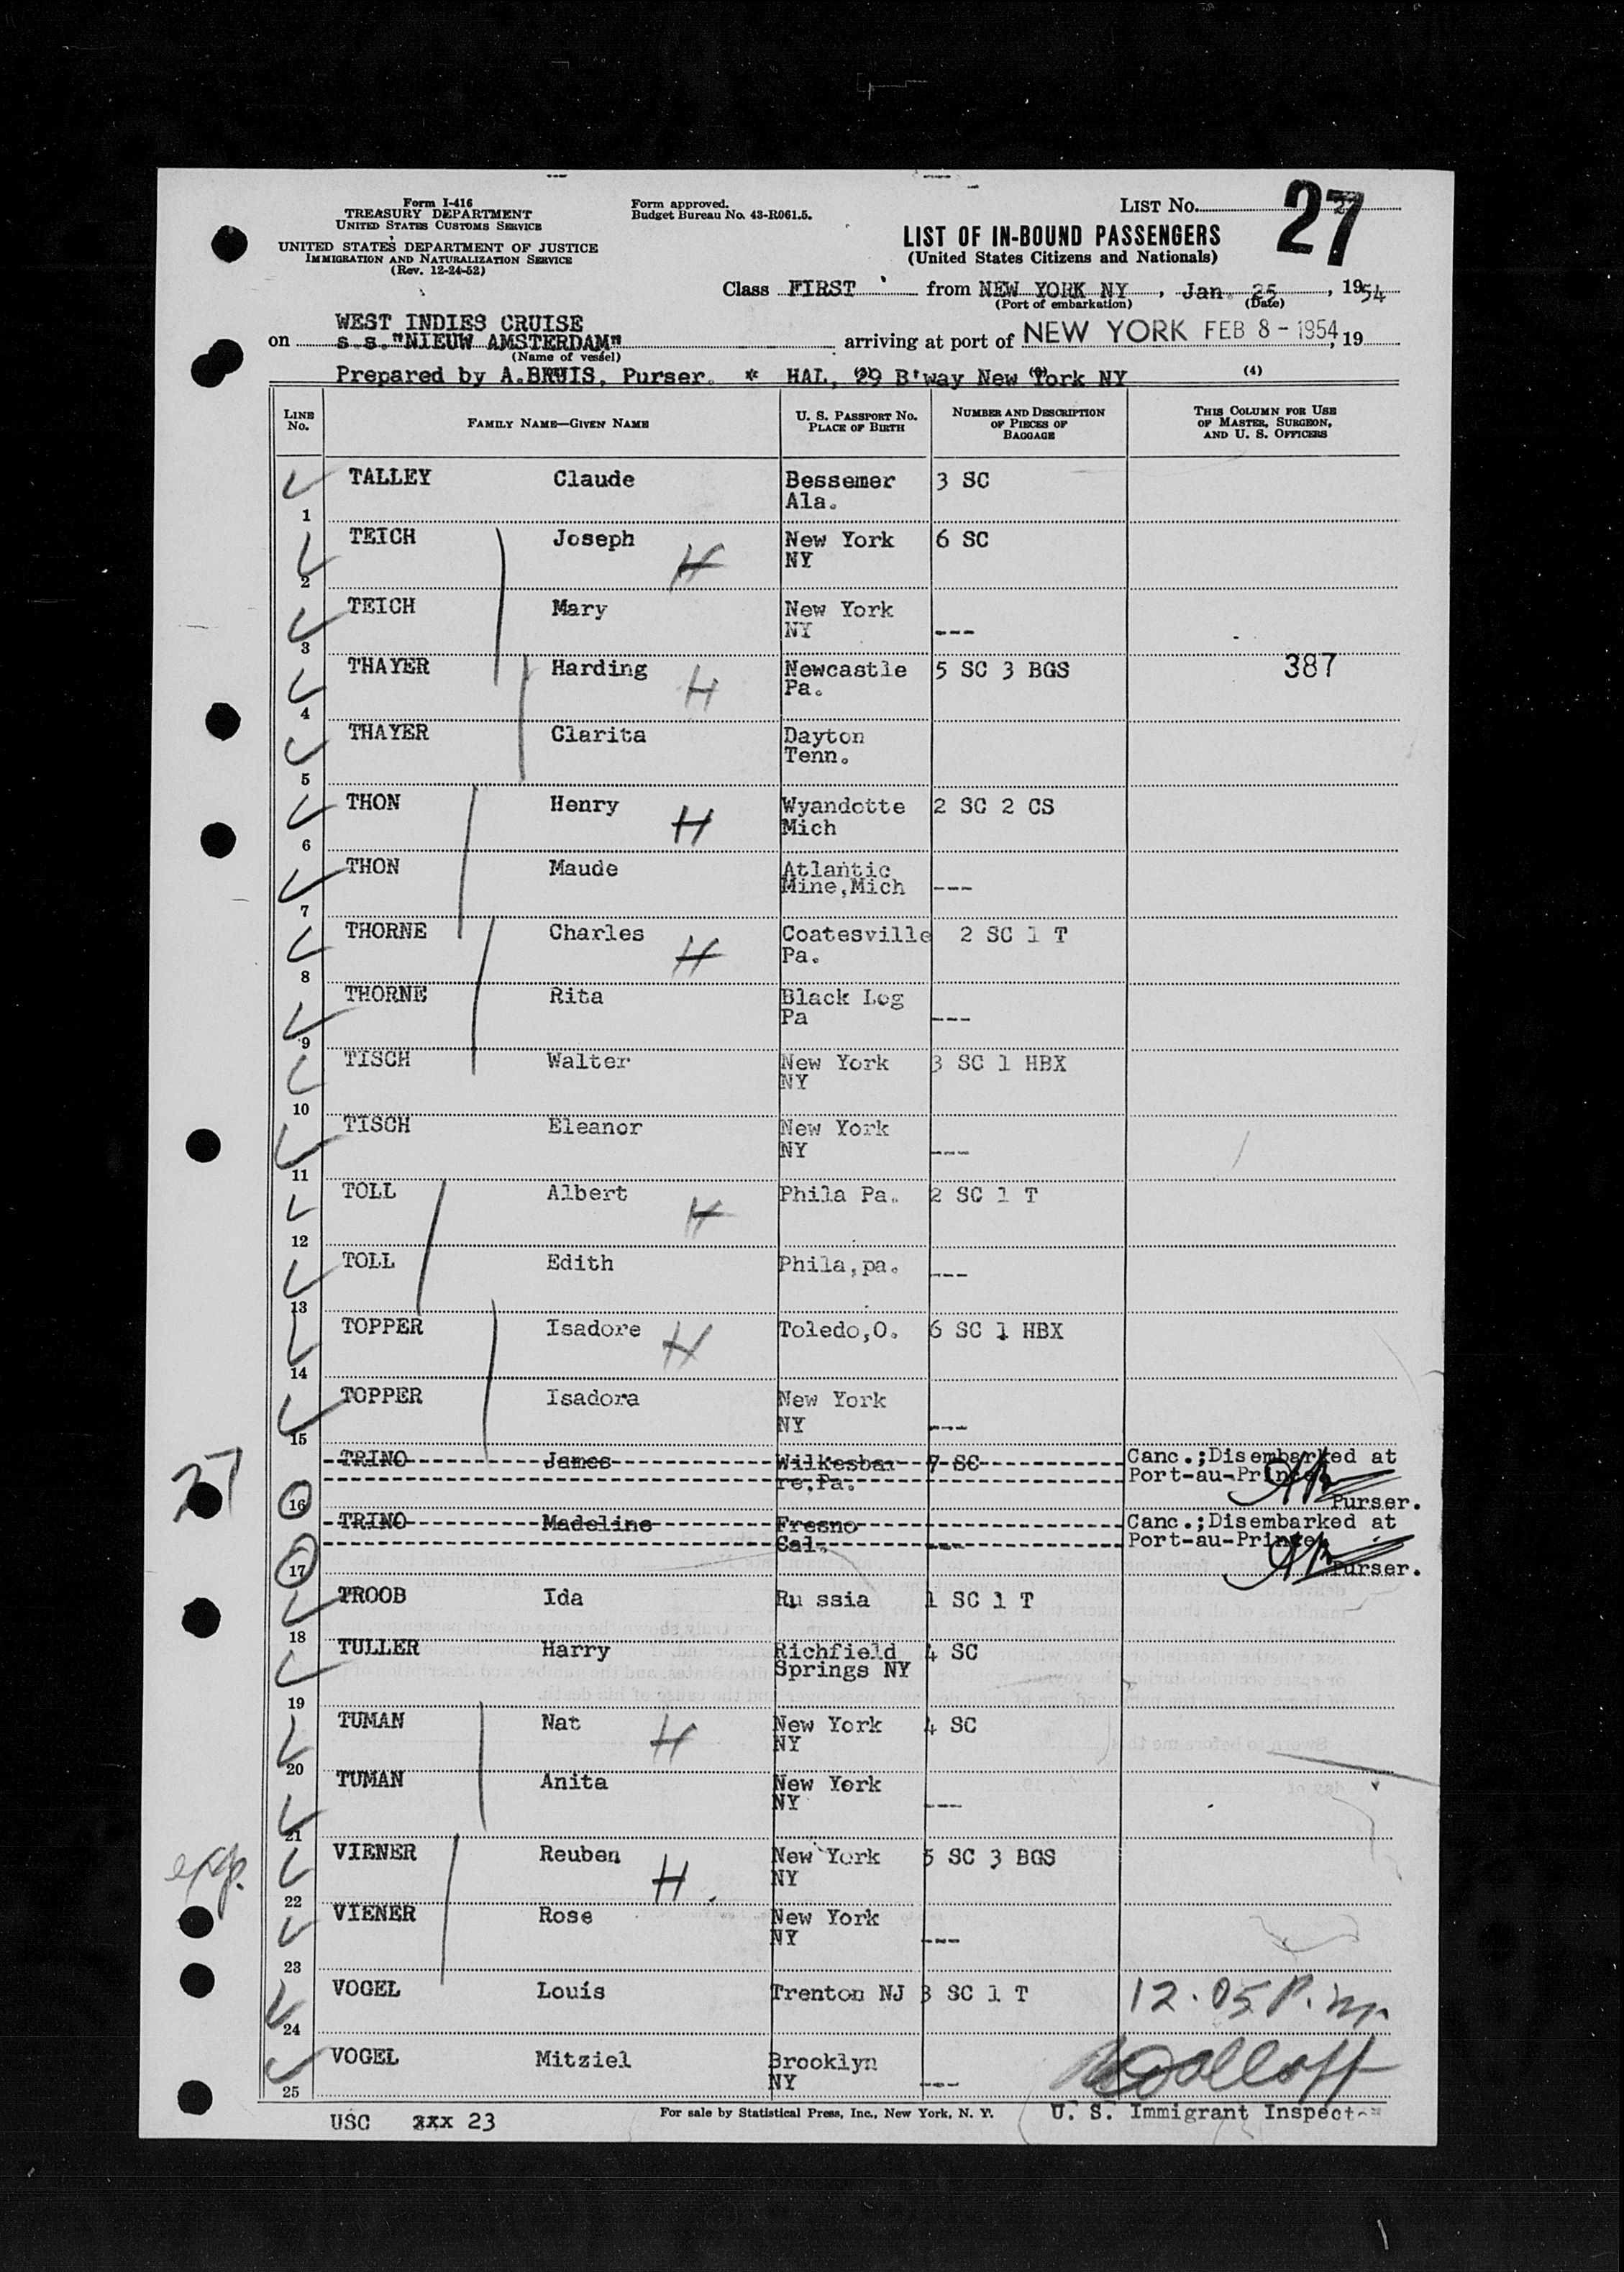 Form I-416
TREASURY DEPARTMENT
UNITED STATES CUSTOMS SERVICE
UNITED STATES DEPARTMENT OF JUSTICE
IMMIGRATION AND NATURALIZATION SERVICE
(Rev. 12-24-52)
Form approved.
Budget Bureau No. 43-R061.5.
LIST No. 27
LIST OF IN-BOUND PASSENGERS
(United States Citizens and Nationals)
Class FIRST from NEW YORK NY, Jan. 25, 1954
(Port of embarkation) (Date)
WEST INDIES CRUISE
on s s."NIEUW AMSTERDAM" arriving at port of NEW YORK FEB 8 - 1954, 19
(Name of vessel)
Prepared by A.BRUIS, Purser. * HAL, 29 B'way New York NY
(2) (3) (4)
LINE No. FAMILY NAME—GIVEN NAME U. S. PASSPORT No. PLACE OF BIRTH NUMBER AND DESCRIPTION OF PIECES OF BAGGAGE THIS COLUMN FOR USE OF MASTER, SURGEON, AND U. S. OFFICERS
1 TALLEY Claude Bessemer Ala. 3 SC
2 TEICH Joseph H New York NY 6 SC
3 TEICH Mary New York NY ---
4 THAYER Harding H Newcastle Pa. 5 SC 3 BGS 387
5 THAYER Clarita Dayton Tenn.
6 THON Henry H Wyandotte Mich 2 SC 2 CS
7 THON Maude Atlantic Mine,Mich ---
8 THORNE Charles H Coatesville Pa. 2 SC 1 T
9 THORNE Rita Black Log Pa ---
10 TISCH Walter New York NY 3 SC 1 HBX
11 TISCH Eleanor New York NY ---
12 TOLL Albert H Phila Pa. 2 SC 1 T
13 TOLL Edith Phila,pa. ---
14 TOPPER Isadore H Toledo,O. 6 SC 1 HBX
15 TOPPER Isadora New York NY ---
27
16 TRINO James Wilkesbar re,Pa. 7 SC Canc.;Disembarked at Port-au-Prince Purser.
17 TRINO Madeline Fresno Cal. --- Canc.;Disembarked at Port-au-Prince Purser.
18 TROOB Ida Ru ssia 1 SC 1 T
19 TULLER Harry Richfield Springs NY 4 SC
20 TUMAN Nat H New York NY 4 SC
21 TUMAN Anita New York NY ---
22 VIENER Reuben H. New York NY 5 SC 3 BGS
23 VIENER Rose New York NY ---
24 VOGEL Louis Trenton NJ 3 SC 1 T 12.05 P.m
25 VOGEL Mitziel Brooklyn NY ---
USC 23 For sale by Statistical Press, Inc., New York, N. Y. U. S. Immigrant Inspect